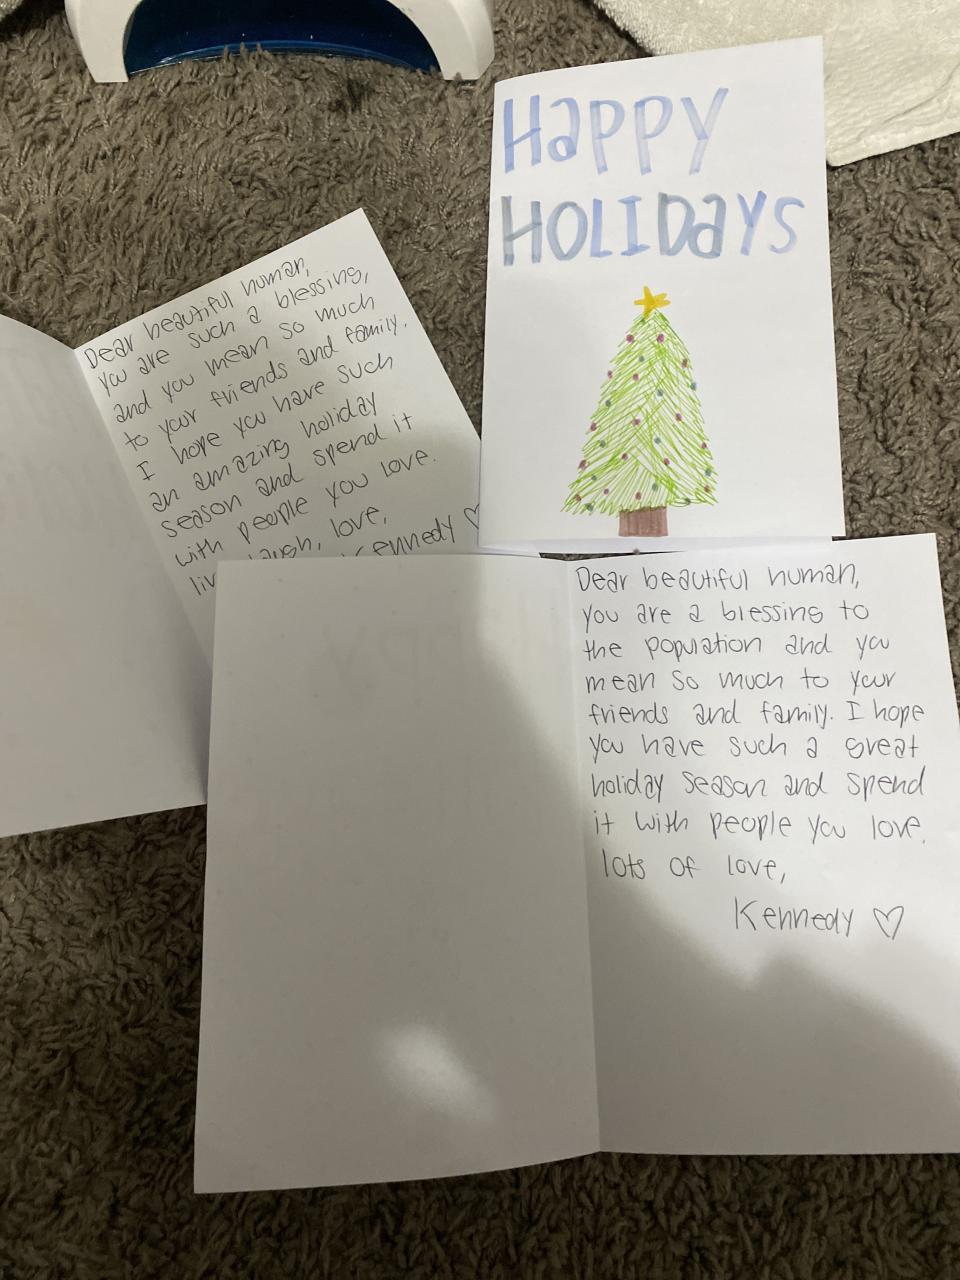 HAPPY
HOLIDAYS
Dear beautiful human,
you are such a blessing,
and you mean so much
to your friends and family.
I hope you have such
an amazing holiday
season and spend it
with people you love.
laugh, love,
Kennedy ♡
Dear beautiful human,
you are a blessing to
the population and you
mean so much to your
friends and family. I hope
you have such a great
holiday season and spend
it with people you love.
lots of love,
Kennedy ♡